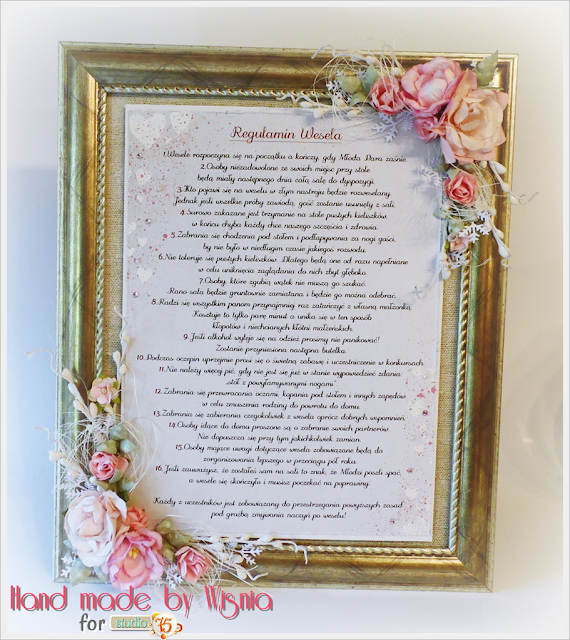 Regulamin Wesela
1.Wesele rozpoczyna się na początku a kończy, gdy Młoda Para zaśnie.
2.Osoby niezadowolone ze swoich miejsc przy stole
będą miały następnego dnia całą salę do dyspozycji.
3. Kto pojawi się na weselu w złym nastroju będzie rozweselany.
Jednak jeśli wszelkie próby zawiodą, gość zostanie usunięty z sali.
4. Surowo zakazane jest trzymanie na stole pustych kieliszków,
w końcu chyba każdy chce naszego szczęścia i zdrowia.
5. Zabrania się chodzenia pod stołem i podłapywania za nogi gości,
by nie było w niedługim czasie jakiegoś rozwodu.
6.Nie toleruje się pustych kieliszków. Dlatego będą one od razu napełniane
w celu uniknięcia zaglądania do nich zbyt głęboko.
7.Osoby, które zgubią wątek nie muszą go szukać.
Rano sala będzie gruntownie zamiatana i będzie go można odebrać.
8. Radzi się wszystkim panom przynajmniej raz zatańczyć z własną małżonką.
Kosztuje to tylko parę minut a unika się w ten sposób
kłopotów i niechcianych kłótni małżeńskich.
9. Jeśli alkohol wyleje się na odzież prosimy nie panikować!
Zostanie przyniesiona następna butelka.
10.Podczas oczepin uprzejmie prosi się o świetną zabawę i uczestniczenie w konkursach.
11.Nie należy więcej pić, gdy nie jest się już w stanie wypowiedzieć zdania:
"stół z powyłamywanymi nogami".
12.Zabrania się przewracania oczami, kopania pod stołem i innych zapędów
w celu zmuszenia rodziny do powrotu do domu.
13.Zabrania się zabierania czegokolwiek z wesela oprócz dobrych wspomnień.
14.Osoby idące do domu proszone są o zabranie swoich partnerów.
Nie dopuszcza się przy tym jakichkolwiek zamian.
15.Osoby mające uwagi dotyczące wesela zobowiązane będą do
zorganizowania lepszego w przeciągu pół roku.
16. Jeśli zauważysz, że zostałeś sam na sali to znak, że Młodzi poszli spać,
a wesele się skończyło i musisz poczekać na poprawiny.
Każdy z uczestników jest zobowiązany do przestrzegania powyższych zasad
pod groźbą zmywania naczyń po weselu!
Hand made by Wisnia
for studio 75